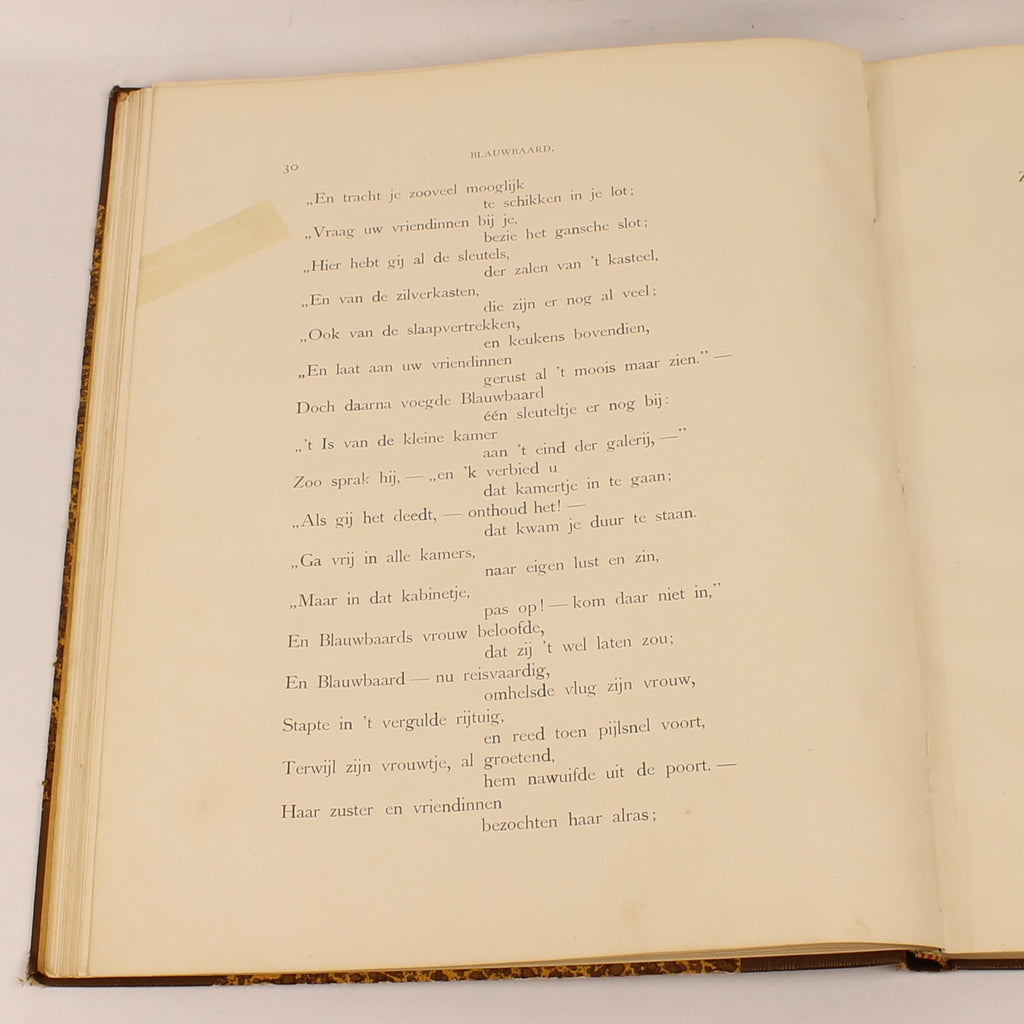 30
BLAUWBAARD.
„En tracht je zooveel mooglijk
te schikken in je lot;
„Vraag uw vriendinnen bij je,
bezie het gansche slot;
„Hier hebt gij al de sleutels,
der zalen van 't kasteel,
„En van de zilverkasten,
die zijn er nog al veel;
„Ook van de slaapvertrekken,
en keukens bovendien,
„En laat aan uw vriendinnen
gerust al 't moois maar zien.” —
Doch daarna voegde Blauwbaard
één sleuteltje er nog bij:
„'t Is van de kleine kamer
aan 't eind der galerij, —”
Zoo sprak hij, — „en 'k verbied u
dat kamertje in te gaan;
„Als gij het deedt, — onthoud het! —
dat kwam je duur te staan.
„Ga vrij in alle kamers,
naar eigen lust en zin,
„Maar in dat kabinetje,
pas op! — kom daar niet in,”
En Blauwbaards vrouw beloofde,
dat zij 't wel laten zou;
En Blauwbaard — nu reisvaardig,
omhelsde vlug zijn vrouw,
Stapte in 't vergulde rijtuig,
en reed toen pijlsnel voort,
Terwijl zijn vrouwtje, al groetend,
hem nawuifde uit de poort. —
Haar zuster en vriendinnen
bezochten haar alras;